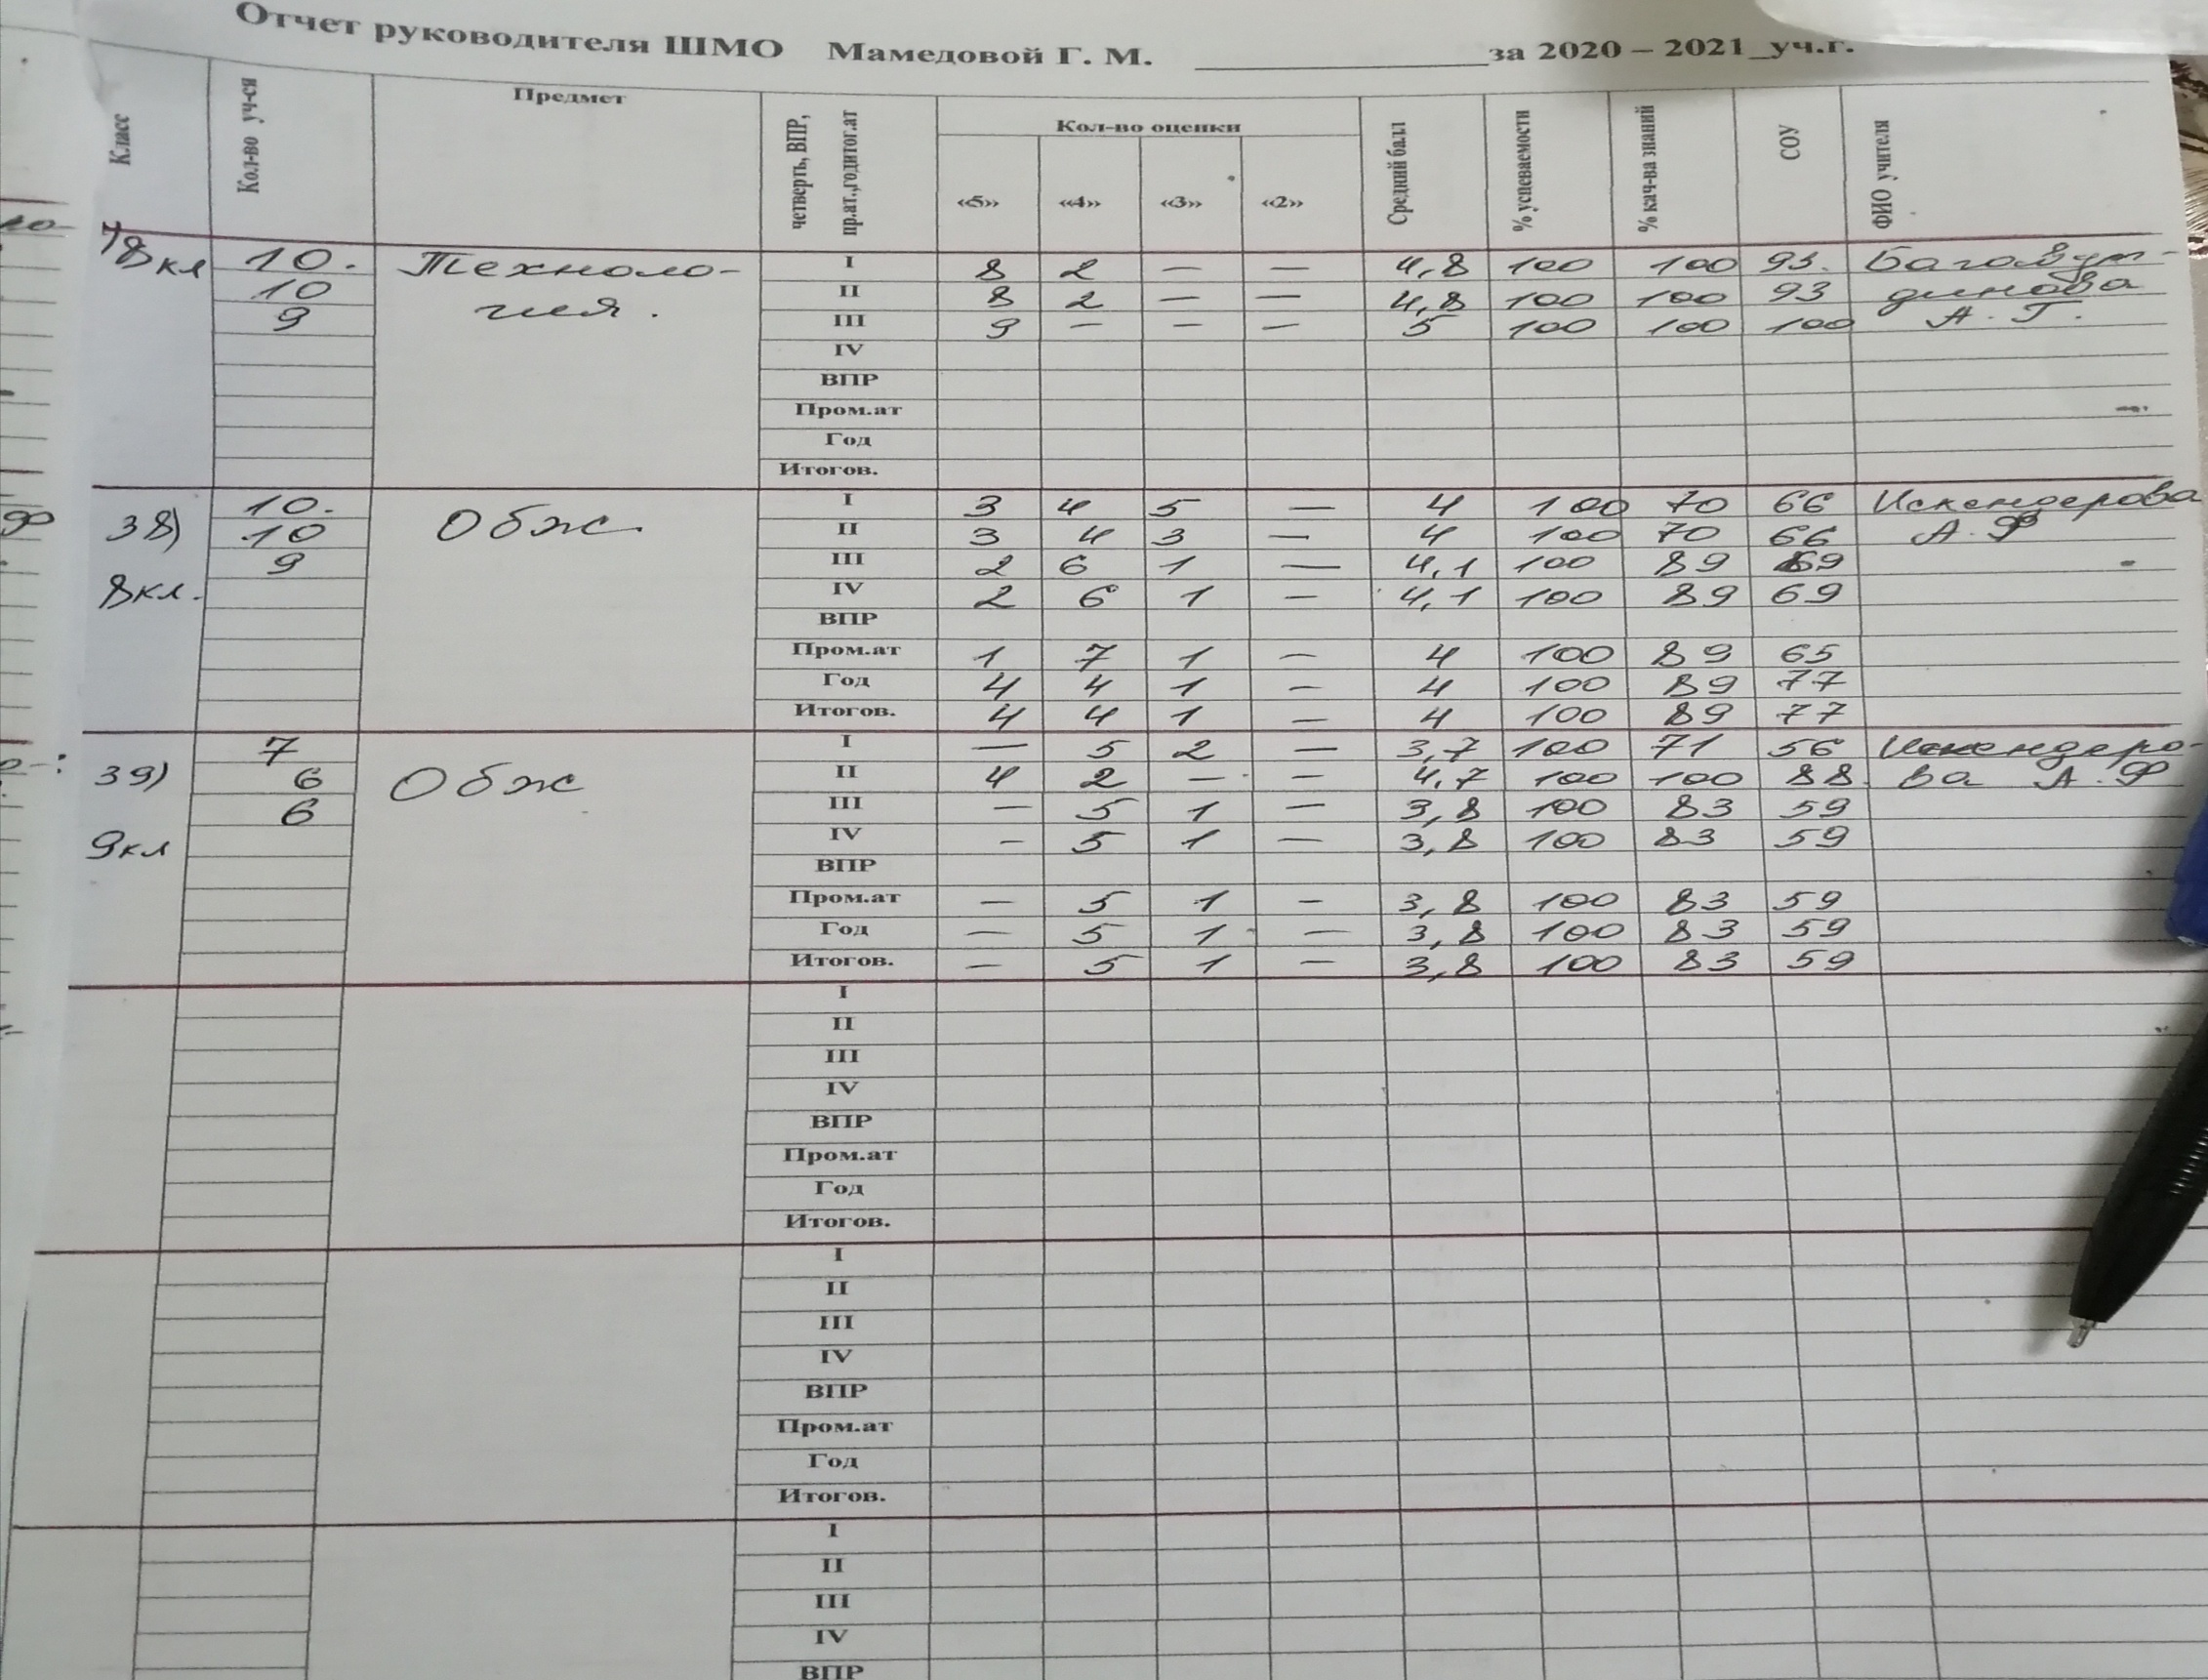 Отчет руководителя ШМО Мамедовой Г. М. за 2020 – 2021_уч.г.
Класс Кол-во уч-ся Предмет четверть, ВПР, пр.ат.,год,итог.ат Кол-во оценки Средний балл % успеваемости % кач-ва знаний СОУ ФИО учителя
«5» «4» «3» «2»
8кл 10. Техноло- I 8 2 — — 4,8 100 100 93.
10 гия. II 8 2 — — 4,8 100 100 93 динова
9 III 9 — — — 5 100 100 100 А. Г.
IV
ВПР
Пром.ат
Год
Итогов.
38) 10. Обж. I 3 4 5 — 4 100 70 66 Искендерова
10 II 3 4 3 — 4 100 70 66 А. Ф
9 III 2 6 1 — 4,1 100 89 69
8кл. IV 2 6 1 — 4,1 100 89 69
ВПР
Пром.ат 1 7 1 — 4 100 89 65
Год 4 4 1 — 4 100 89 77
Итогов. 4 4 1 — 4 100 89 77
39) 7 Обж I — 5 2 — 3,7 100 71 56 Искендеро-
6 II 4 2 — — 4,7 100 100 88. ва А. Ф
6 III — 5 1 — 3,8 100 83 59
9кл IV — 5 1 — 3,8 100 83 59
ВПР
Пром.ат — 5 1 — 3,8 100 83 59
Год — 5 1 — 3,8 100 83 59
Итогов. — 5 1 — 3,8 100 83 59
I
II
III
IV
ВПР
Пром.ат
Год
Итогов.
I
II
III
IV
ВПР
Пром.ат
Год
Итогов.
I
II
III
IV
ВПР